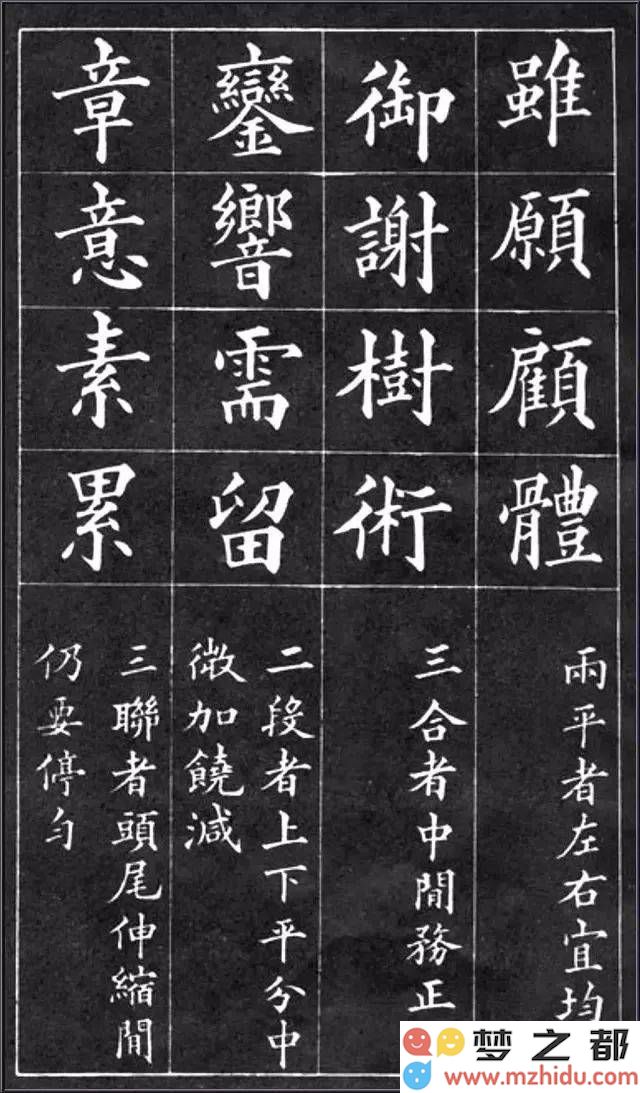 雖願顧體
兩平者左右宜均
御謝樹術
三合者中閒務正
鑾響需留
二段者上下平分中
微加饒減
章意素累
三聯者頭尾伸縮閒
仍要停勻
梦之都
www.mzhidu.com